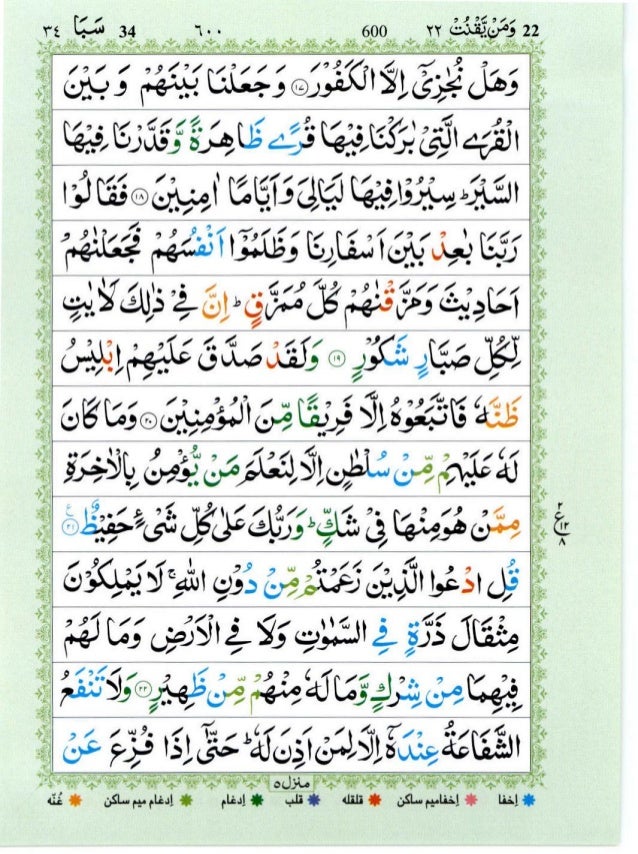 22 وَمَنْ يَّقْنُتْ ٢٢ 600 ٦٠٠ 34 سَبَا ٣٤
وَهَلْ نُجٰزِىْٓ اِلَّا الْكَفُوْرَ ﴿۱۷﴾ وَجَعَلْنَا بَيْنَهُمْ وَبَيْنَ
الْقُرَى الَّتِىْ بٰرَكْنَا فِيْهَا قُرًى ظَاهِرَةً وَّقَدَّرْنَا فِيْهَا
السَّيْرَ ؕ سِيْرُوْا فِيْهَا لَيَالِىَ وَاَيَّامًا اٰمِنِيْنَ ﴿۱۸﴾ فَقَالُوْا
رَبَّنَا بٰعِدْ بَيْنَ اَسْفَارِنَا وَظَلَمُوْٓا اَنْفُسَهُمْ فَجَعَلْنٰهُمْ
اَحَادِيْثَ وَمَزَّقْنٰهُمْ كُلَّ مُمَزَّقٍ ؕ اِنَّ فِىْ ذٰلِكَ لَاٰيٰتٍ
لِّكُلِّ صَبَّارٍ شَكُوْرٍ ﴿۱۹﴾ وَلَقَدْ صَدَّقَ عَلَيْهِمْ اِبْلِيْسُ
ظَنَّهٗ فَاتَّبَعُوْهُ اِلَّا فَرِيْقًا مِّنَ الْمُؤْمِنِيْنَ ﴿۲۰﴾ وَمَا كَانَ
لَهٗ عَلَيْهِمْ مِّنْ سُلْطٰنٍ اِلَّا لِنَعْلَمَ مَنْ يُّؤْمِنُ بِالْاٰخِرَةِ
مِمَّنْ هُوَ مِنْهَا فِىْ شَكٍّ ؕ وَرَبُّكَ عَلٰى كُلِّ شَىْءٍ حَفِيْظٌ ﴿۲۱﴾ ع
٢ ع ١٢ ٨
قُلِ ادْعُوا الَّذِيْنَ زَعَمْتُمْ مِّنْ دُوْنِ اللّٰهِ ۚ لَا يَمْلِكُوْنَ
مِثْقَالَ ذَرَّةٍ فِى السَّمٰوٰتِ وَلَا فِى الْاَرْضِ وَمَا لَهُمْ
فِيْهِمَا مِنْ شِرْكٍ وَّمَا لَهٗ مِنْهُمْ مِّنْ ظَهِيْرٍ ﴿۲۲﴾ وَلَا تَنْفَعُ
الشَّفَاعَةُ عِنْدَهٗٓ اِلَّا لِمَنْ اَذِنَ لَهٗ ؕ حَتّٰٓى اِذَا فُزِّعَ عَنْ
منزل ٥
اِخفا اِخفامیم ساکن قلقله قلب اِدغام اِدغام میم ساکن غُنّه